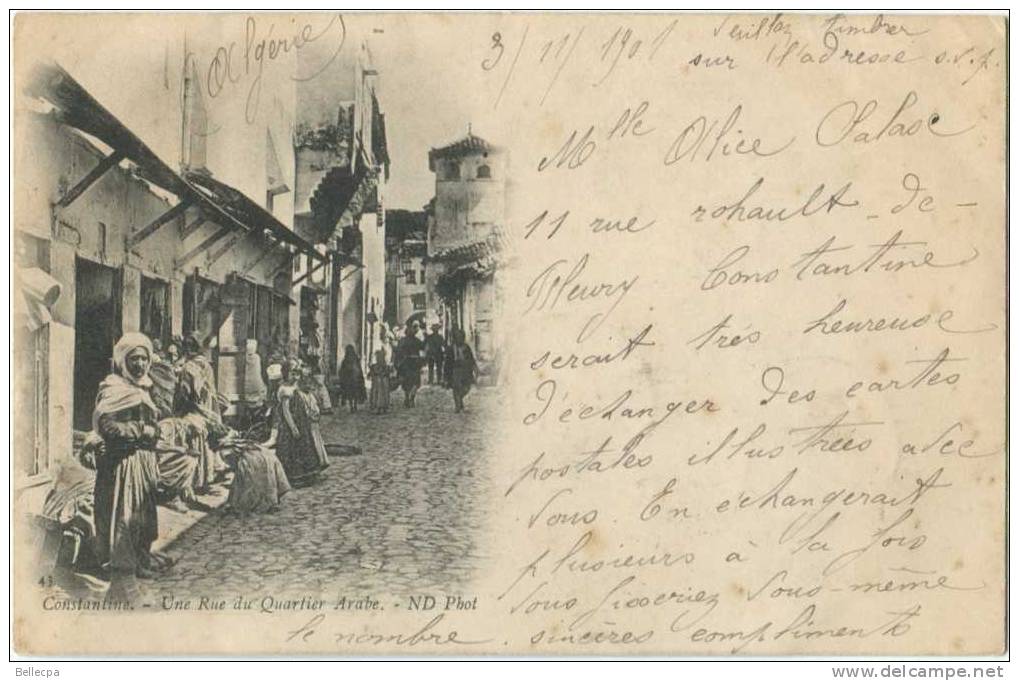 Algérie
3/11/1901
Veuillez timbrer
sur l'adresse s.v.p.
Mlle Alice Salase
11 rue rohault-de-
Fleury Constantine
serait très heureuse
d'échanger des cartes
postales illustrées avec
Vous. En échangerait
plusieurs à la fois
Vous fixeriez Vous-même
le nombre. sincères compliments
43
Constantine. - Une Rue du Quartier Arabe. - ND Phot
Bellecpa
www.delcampe.net